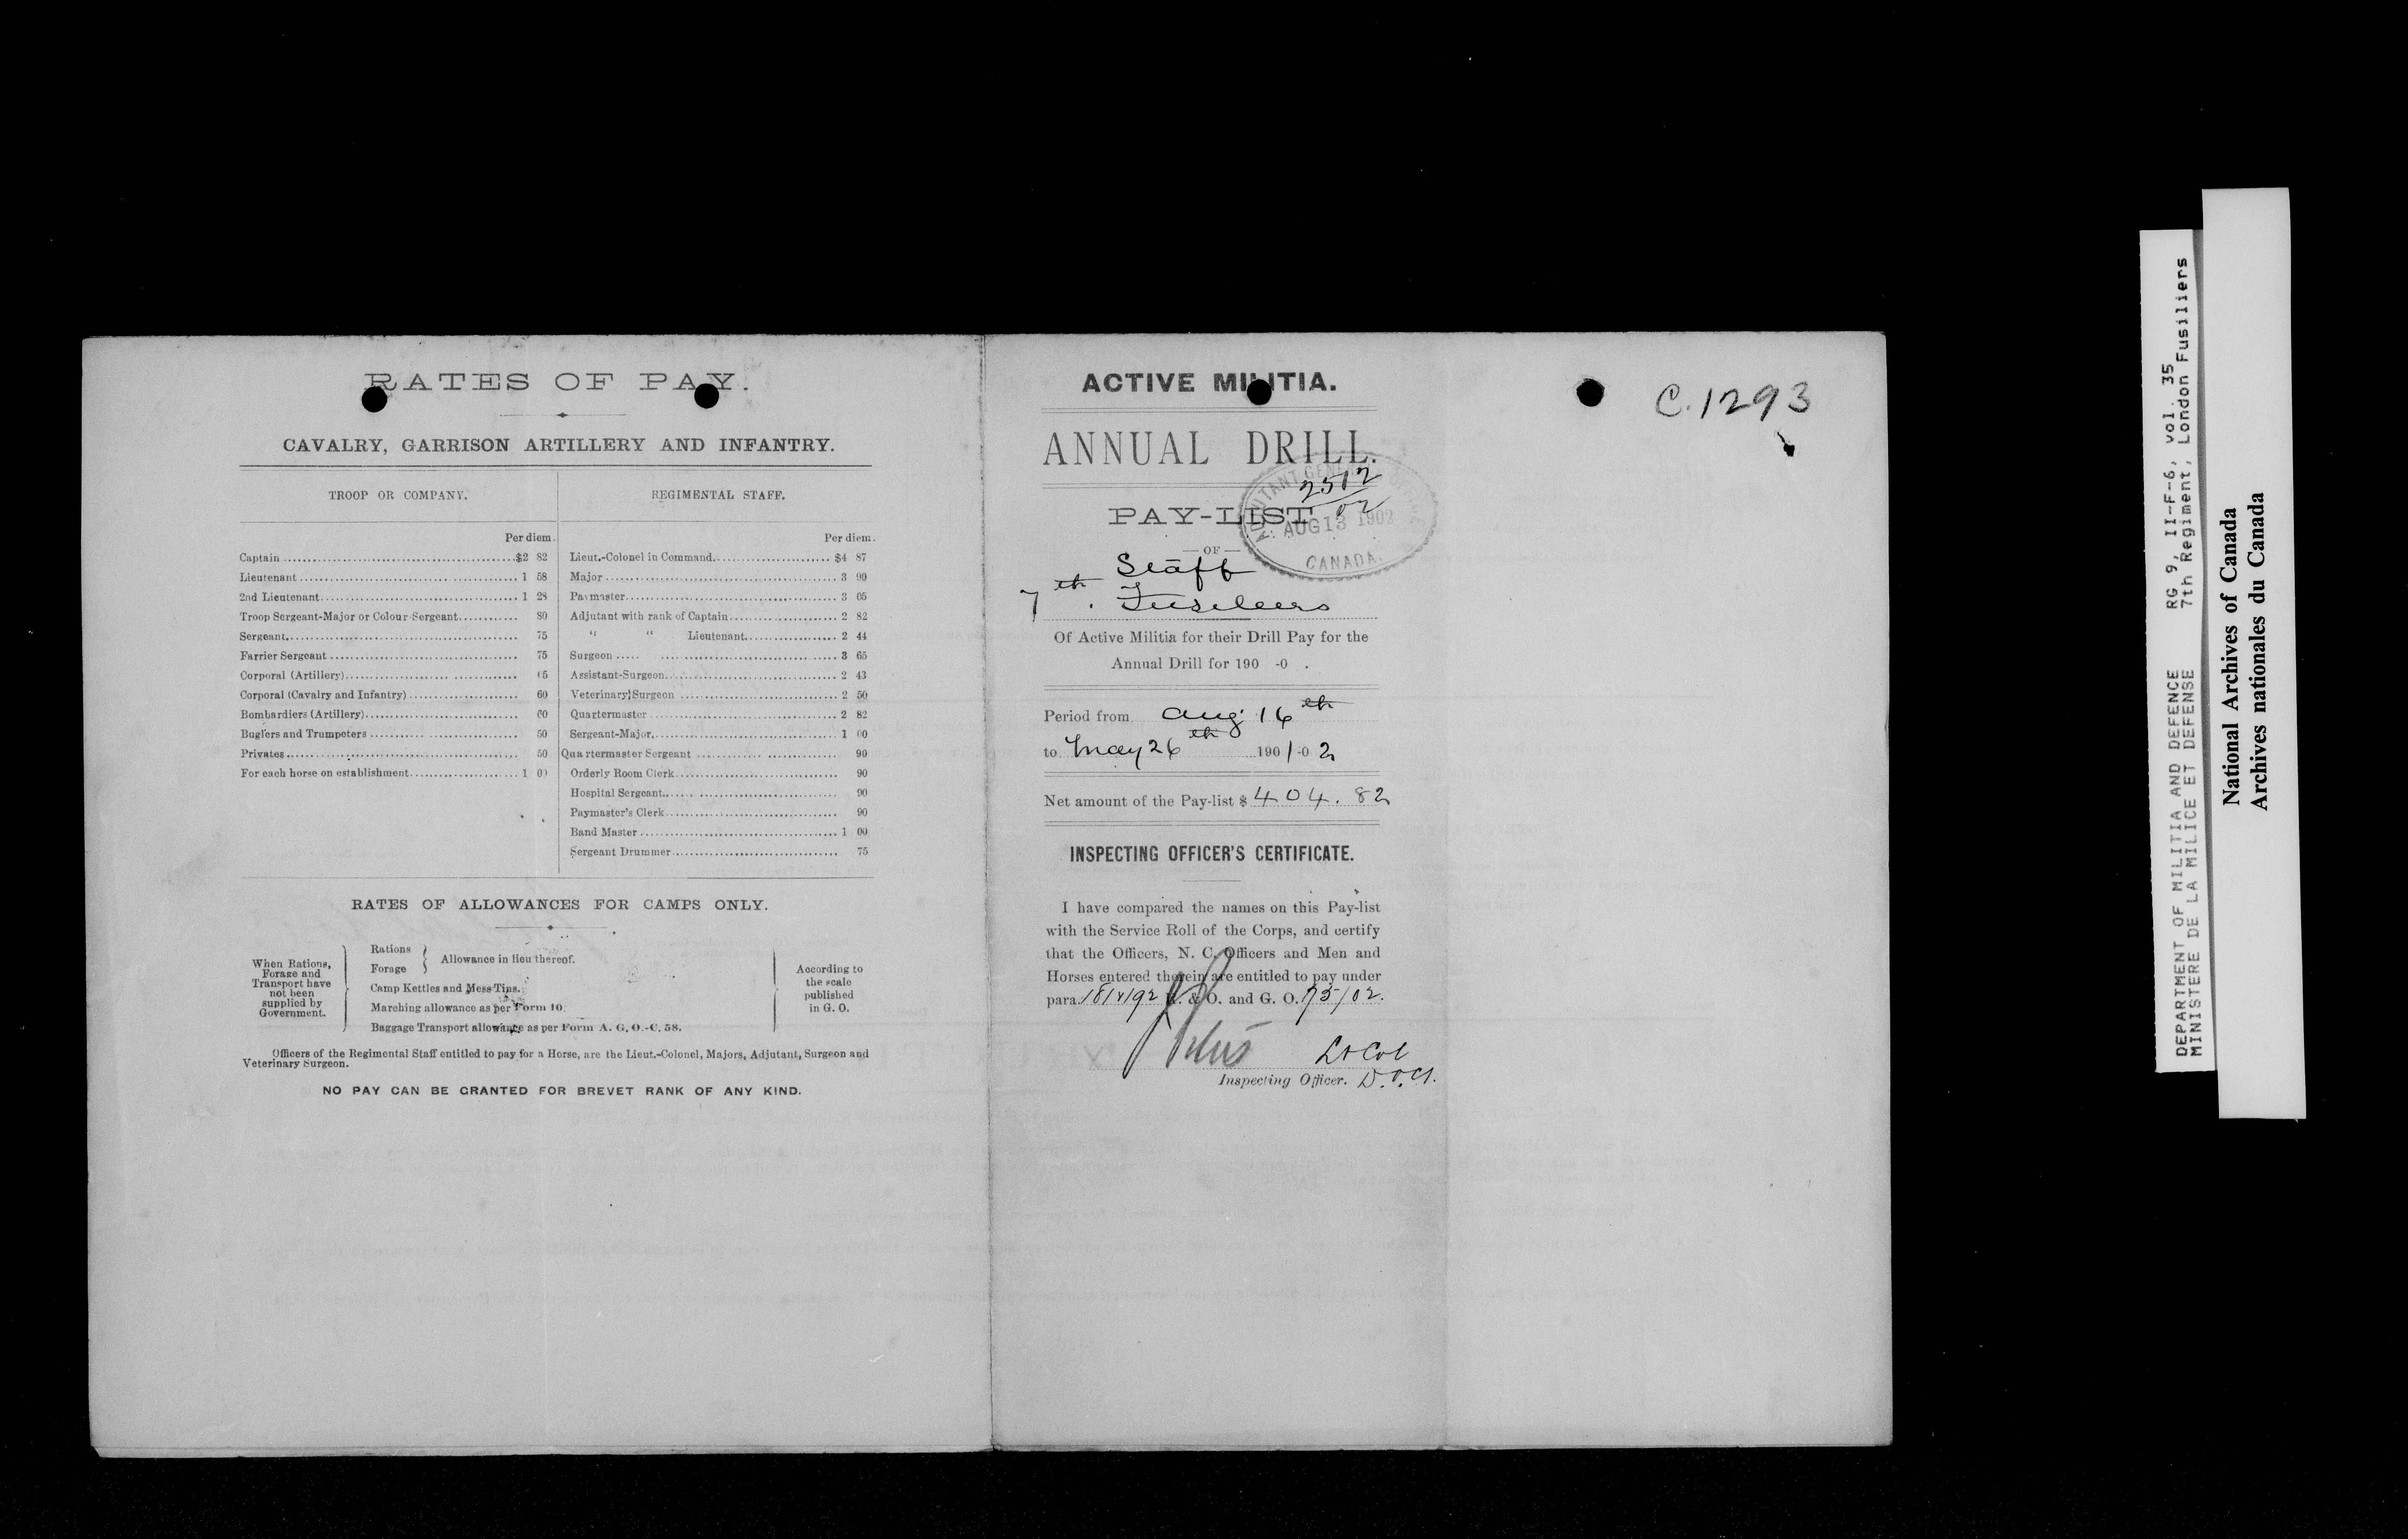 RATES OF PAY.
CAVALRY, GARRISON ARTILLERY AND INFANTRY.
TROOP OR COMPANY.
Per diem.
Captain ........ $2 82
Lieutenant ........ 1 58
2nd Lieutenant ........ 1 28
Troop Sergeant-Major or Colour-Sergeant ........ 80
Sergeant ........ 75
Farrier Sergeant ........ 75
Corporal (Artillery) ........ 65
Corporal (Cavalry and Infantry) ........ 60
Bombardiers (Artillery) ........ 60
Buglers and Trumpeters ........ 50
Privates ........ 50
For each horse on establishment ........ 1 00
REGIMENTAL STAFF.
Per diem.
Lieut.-Colonel in Command ........ $4 87
Major ........ 3 90
Paymaster ........ 3 05
Adjutant with rank of Captain ........ 2 82
" " Lieutenant ........ 2 44
Surgeon ........ 3 65
Assistant-Surgeon ........ 2 43
Veterinary Surgeon ........ 2 50
Quartermaster ........ 2 82
Sergeant-Major ........ 1 00
Quartermaster Sergeant ........ 90
Orderly Room Clerk ........ 90
Hospital Sergeant ........ 90
Paymaster's Clerk ........ 90
Band Master ........ 1 00
Sergeant Drummer ........ 75
RATES OF ALLOWANCES FOR CAMPS ONLY.
When Rations,
Forage and
Transport have
not been
supplied by
Government.
Rations
Forage
Allowance in lieu thereof.
Camp Kettles and Mess Tins.
Marching allowance as per Form 10.
Baggage Transport allowance as per Form A. G. O.-C. 58.
According to
the scale
published
in G. O.
Officers of the Regimental Staff entitled to pay for a Horse, are the Lieut.-Colonel, Majors, Adjutant, Surgeon and
Veterinary Surgeon.
NO PAY CAN BE GRANTED FOR BREVET RANK OF ANY KIND.
ACTIVE MILITIA.
ANNUAL DRILL.
2512
02
ADJUTANT GENERAL OFFICE
AUG 13 1902
CANADA.
PAY-LIST
— OF —
Staff
7th Fusileers
Of Active Militia for their Drill Pay for the
Annual Drill for 190 -0 .
Period from Aug 16th
to May 26th 1901-02
Net amount of the Pay-list $ 404.82
INSPECTING OFFICER'S CERTIFICATE.
I have compared the names on this Pay-list
with the Service Roll of the Corps, and certify
that the Officers, N. C. Officers and Men and
Horses entered therein are entitled to pay under
para 181 & 192 R. & O. and G. O. 75/02.
Lt Col
Inspecting Officer. D.O.C.
C.1293
DEPARTMENT OF MILITIA AND DEFENCE RG 9, II-F-6, vol. 35
MINISTERE DE LA MILICE ET DEFENSE 7th Regiment, London Fusiliers
National Archives of Canada
Archives nationales du Canada